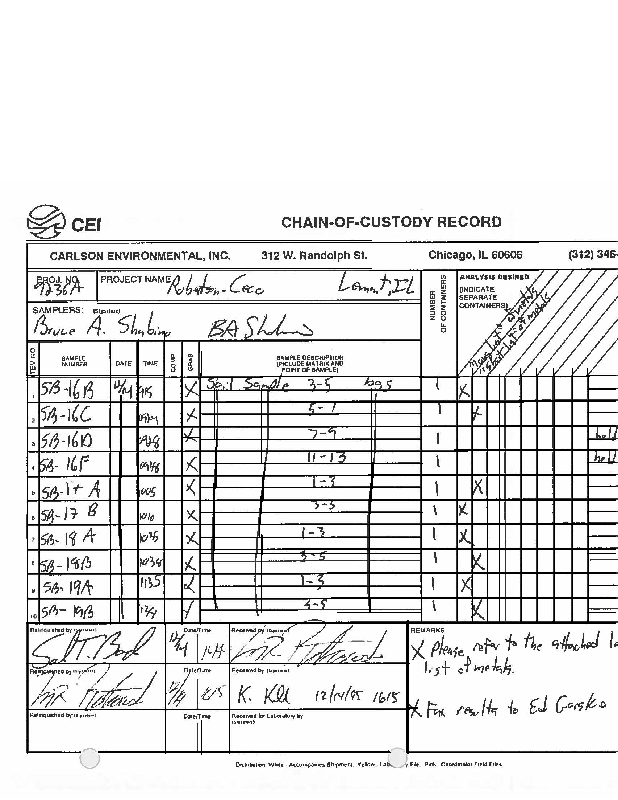 CEI CHAIN-OF-CUSTODY RECORD
CARLSON ENVIRONMENTAL, INC. 312 W. Randolph St. Chicago, IL 60606 (312) 346-
PROJ. NO. 9236A PROJECT NAME Robertson-Ceco Lemont, IL
NUMBER OF CONTAINERS
ANALYSIS DESIRED
(INDICATE
SEPARATE
CONTAINERS)
SAMPLERS: (Signature)
Bruce A.
ITEM NO. SAMPLE NUMBER DATE TIME COMP GRAB SAMPLE DESCRIPTION (INCLUDE MATRIX AND POINT OF SAMPLE)
1 SB-16B 12/14 915 X Soil Sample 3-5 bgs 1 X
2 SB-16C 5-7 1 X
3 SB-16D 0928 X 7-9 1 hold
4 SB-16F 0948 X 11-13 1 hold
5 SB-17A 1005 X 1-3 1 X
6 SB-17B 1010 X 3-5 1 X
7 SB-18A 1035 X 1-3 1 X
8 SB-18B 1038 X 3-5 1 X
9 SB-19A 1135 X 1-3 1 X
10 SB-19B X 3-5 1 X
Relinquished by (Signature) Date/Time Received by (Signature) REMARKS
12/14
X Please refer to the attached
list of metals.
Relinquished by (Signature) Date/Time Received by (Signature)
12/14 1615 K. 12/14/95 1615
X Fax results to Ed
Relinquished by (Signature) Date/Time Received for Laboratory by (Signature)
Distribution: White - Accompanies Shipment; Yellow - Laboratory File; Pink - Coordinator Field Files